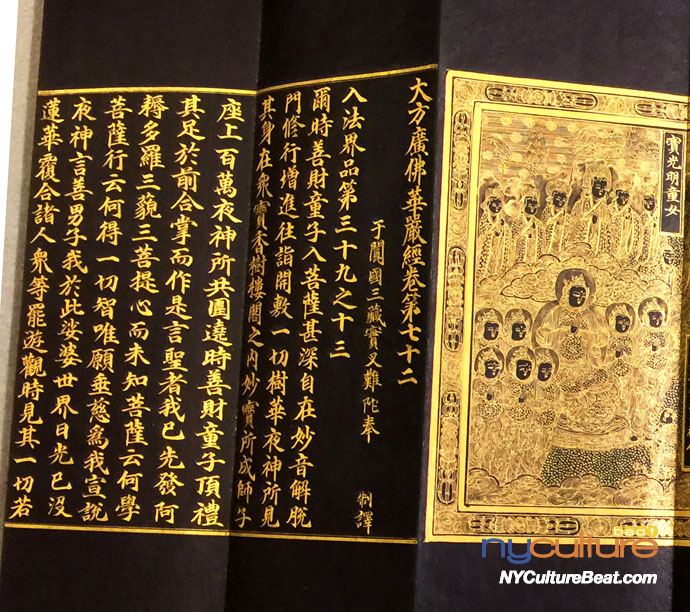 寶光明童女
大方廣佛華嚴經卷第七十二
于闐國三藏實叉難陀奉 制譯
入法界品第三十九之十三
爾時善財童子入菩薩甚深自在妙音解脫
門修行增進往詣開敷一切樹華夜神所見
其身在衆寶香樹樓閣之内妙寶所成師子
座上百萬夜神所共圍遶時善財童子頂禮
其足於前合掌而作是言聖者我已先發阿
耨多羅三藐三菩提心而未知菩薩云何學
菩薩行云何得一切智唯願垂慈爲我宣說
夜神言善男子我於此娑婆世界日光已没
蓮華覆合諸人衆等罷遊觀時見其一切若
beat
nyculture
NYCultureBeat.com